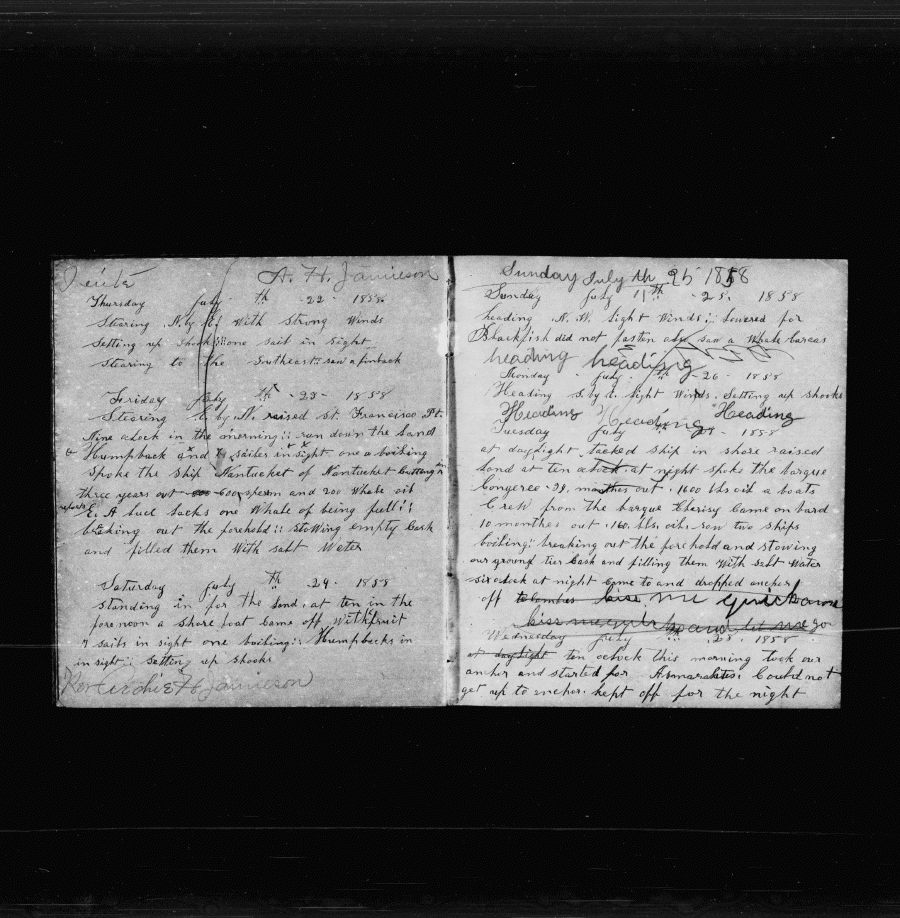 A. H. Jamieson
Thursday July th 22 - 1858
Stearing N. by E With Strong Winds
Setting up Shooks one sail in Sight
Stearing to the Southeast saw a finback
Friday July th - 23 - 1858
Stearing by N. raised st. Francisco Pt.
Nine aclock in the morning :: run down the land
Humpback and sailes in sight one a boiling
Spoke the Ship Nantucket of Nantucket Cutting in
three years out 600 sperm and 200 Whale oil
E. A Luce lacks one Whale of being full ::
breaking out the forehold :: stowing empty Cask
and filled them With salt Water
Saturday July th - 24 - 1858
standing in for the land. at ten in the
forenoon a shore boat Came off With fruit
7 sails in sight one boiling :: Humpbacks in
in sight :: Setting up shooks
H Jamieson
Sunday July th 25 1858
Sunday July th - 25. 1858
heading N. W. light Winds :: Lowered for
Blackfish did not fasten any saw a Whale Carcas
heading heading
Monday July th - 26 - 1858
Heading S. by E. light Winds. Setting up shooks
Heading Heading Heading
Tuesday July th 1858
at daylight tacked ship in shore raised
land at ten aclock at night spoke the barque
Congeree - 29. months out. 1600 bls oil a boats
Crew from the barque Came on bard
10 months out. 160. bls. oil. saw two ships
boiling :: breaking out the forehold and stowing
our ground tier Cask and filling them With salt Water
six aclock at night Came to and dropped ancher
off kiss me quick
kiss me quick and let me go
Wednesday July th 28. 1858
at daylight ten aclock this morning took our
ancher and started for Could not
get up to ancher. kept off for the night